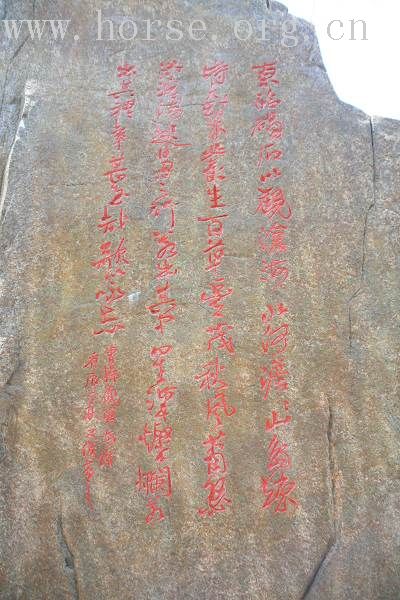 www.horse.org.cn
東臨碣石以觀滄海水何澹澹山島竦
峙樹木叢生百草豐茂秋風蕭瑟
洪波湧起日月之行若出其中星漢燦爛若
出其裡幸甚至哉歌以詠志